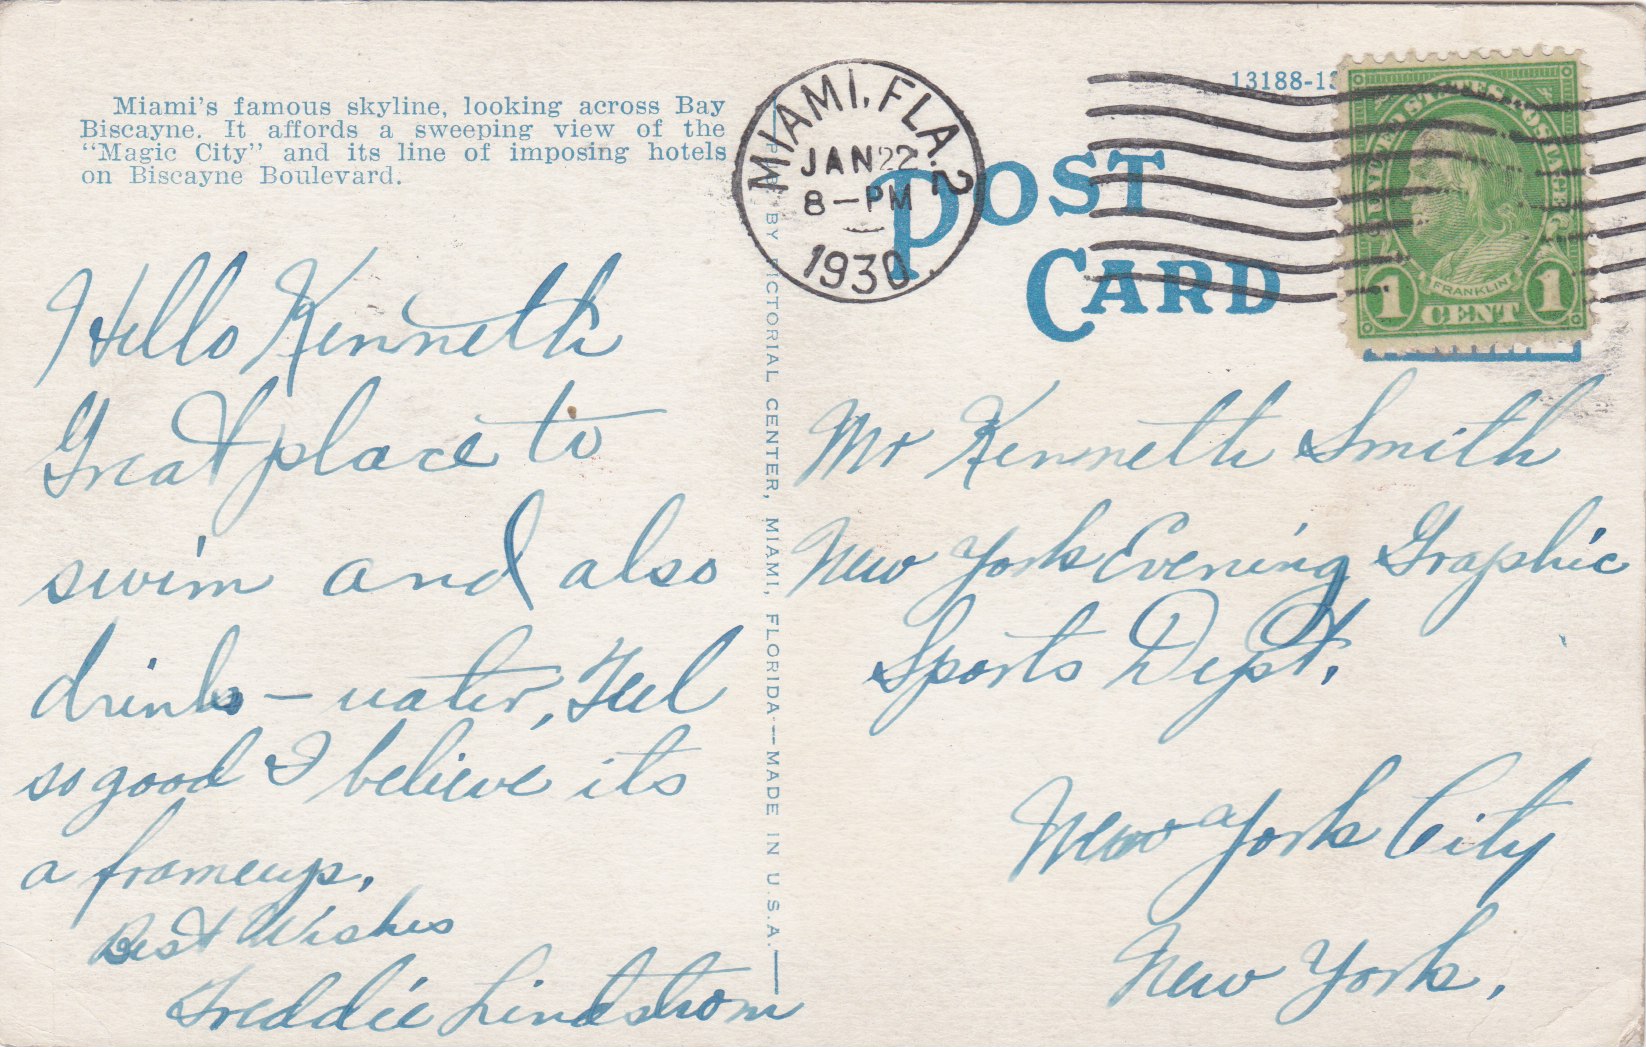 Miami's famous skyline, looking across Bay
Biscayne. It affords a sweeping view of the
"Magic City" and its line of imposing hotels
on Biscayne Boulevard.
Hello Kenneth
Great place to
swim and also
drink – water, Feel
so good I believe its
a frameup.
Best Wishes
Freddie Lindstrom
BY PICTORIAL CENTER, MIAMI, FLORIDA—MADE IN U.S.A.
MIAMI, FLA. 2
JAN 22
8–PM
1930
POST
CARD
13188-13
FRANKLIN
1 CENT 1
Mr Kenneth Smith
New York Evening Graphic
Sports Dept.
New York City
New York.